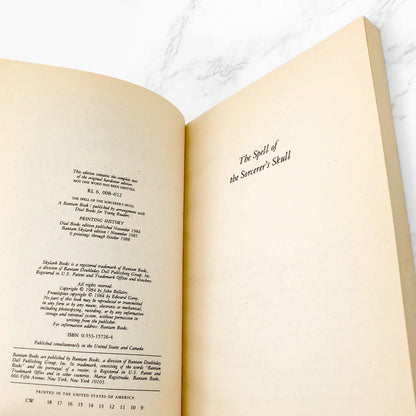 This edition contains the complete text
of the original hardcover edition.
NOT ONE WORD HAS BEEN OMITTED.
RL 6, 008–012
THE SPELL OF THE SORCERER'S SKULL
A Bantam Book / published by arrangement with
Dial Books for Young Readers
PRINTING HISTORY
Dial Books edition published November 1984
Bantam Skylark edition / November 1985
6 printings through October 1988
Skylark is a registered trademark of Bantam Books,
a division of Bantam Doubleday Dell Publishing Group, Inc.
Registered in U.S. Patent and Trademark Office and elsewhere.
All rights reserved.
Copyright © 1984 by John Bellairs.
Frontispiece copyright © 1984 by Edward Gorey.
No part of this book may be reproduced or transmitted
in any form or by any means, electronic or mechanical,
including photocopying, recording, or by any information
storage and retrieval system, without permission in
writing from the publisher.
For information address: Bantam Books.
ISBN 0-553-15726-4
Published simultaneously in the United States and Canada
Bantam Books are published by Bantam Books, a division of Bantam Doubleday
Dell Publishing Group, Inc. Its trademark, consisting of the words "Bantam
Books" and the portrayal of a rooster, is Registered in U.S. Patent and
Trademark Office and in other countries. Marca Registrada. Bantam Books,
666 Fifth Avenue, New York, New York 10103.
PRINTED IN THE UNITED STATES OF AMERICA
CW 18 17 16 15 14 13 12 11 10 9
The Spell of
the Sorcerer's Skull